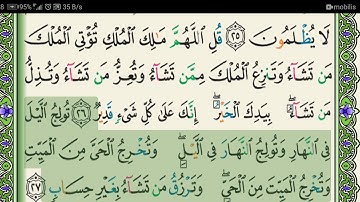 95% 35 B/s mobilis
لَا يُظْلَمُونَ ٢٥ قُلِ ٱللَّهُمَّ مَٰلِكَ ٱلْمُلْكِ تُؤْتِى ٱلْمُلْكَ
مَن تَشَآءُ وَتَنزِعُ ٱلْمُلْكَ مِمَّن تَشَآءُ وَتُعِزُّ مَن تَشَآءُ وَتُذِلُّ
مَن تَشَآءُ ۖ بِيَدِكَ ٱلْخَيْرُ ۖ إِنَّكَ عَلَىٰ كُلِّ شَىْءٍ قَدِيرٌ ٢٦ تُولِجُ ٱلَّيْلَ
فِى ٱلنَّهَارِ وَتُولِجُ ٱلنَّهَارَ فِى ٱلَّيْلِ ۖ وَتُخْرِجُ ٱلْحَىَّ مِنَ ٱلْمَيِّتِ
وَتُخْرِجُ ٱلْمَيِّتَ مِنَ ٱلْحَىِّ ۖ وَتَرْزُقُ مَن تَشَآءُ بِغَيْرِ حِسَابٍ ٢٧